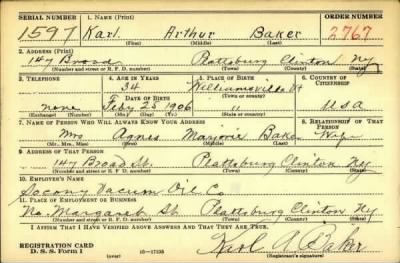 SERIAL NUMBER 1. NAME (Print) ORDER NUMBER
1597 Karl Arthur Baker 2767
(First) (Middle) (Last)
2. ADDRESS (Print)
147 Broad Plattsburg Clinton Ny
(Number and street or R. F. D. number) (Town) (County) (State)
3. TELEPHONE 4. AGE IN YEARS 5. PLACE OF BIRTH 6. COUNTRY OF CITIZENSHIP
34 Williamsville Vt
(Town or county)
DATE OF BIRTH
none Feby 25 1906 " USA
(Exchange) (Number) (Mo.) (Day) (Yr.) (State or country)
7. NAME OF PERSON WHO WILL ALWAYS KNOW YOUR ADDRESS 8. RELATIONSHIP OF THAT PERSON
Mrs Agnes Marjorie Baker Wife
(Mr., Mrs., Miss) (First) (Middle) (Last)
9. ADDRESS OF THAT PERSON
147 Broad St. Plattsburg Clinton Ny
(Number and street or R. F. D. number) (Town) (County) (State)
10. EMPLOYER'S NAME
Socony Vacum Oil Co
11. PLACE OF EMPLOYMENT OR BUSINESS
No. Margaret St Plattsburg Clinton Ny
(Number and street or R. F. D. number) (Town) (County) (State)
I AFFIRM THAT I HAVE VERIFIED ABOVE ANSWERS AND THAT THEY ARE TRUE.
REGISTRATION CARD
D. S. S. FORM 1 (over) 16—17105 Karl A Baker
(Registrant's signature)